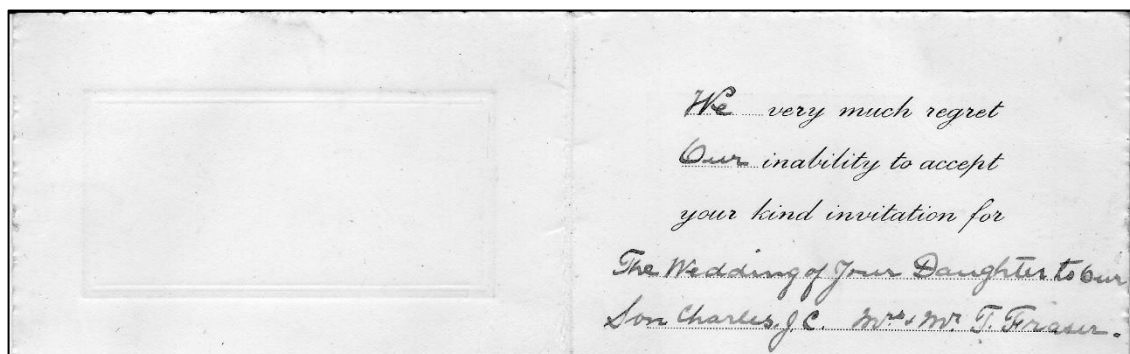 We very much regret
Our inability to accept
your kind invitation for
The Wedding of Your Daughter to Our
Son Charles. J. C. Mrs & Mr. T. Fraser.